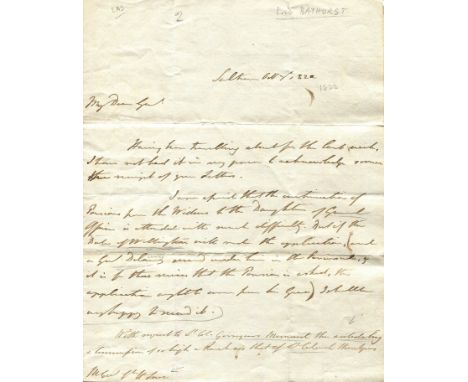 2
Lord BATHURST
Octr. 1822
1822
My Dear Genl.
Having been travelling about for the last week,
I have not had it in my power to acknowledge sooner
the receipt of your Letters.
I am afraid that the continuation of
Pensions from the Widows to the Daughters of General
Officers is attended with much difficulty. But if the
Duke of Wellington will make the application (and
as Genl. served under him in the Peninsula, &
it is for these services that the Pension is asked, the
application ought to come from his Grace) I shall be
very happy to second it.
With respect to Lt. Col.
that of Lt. Colonel
M. Genl. Sir H Lowe